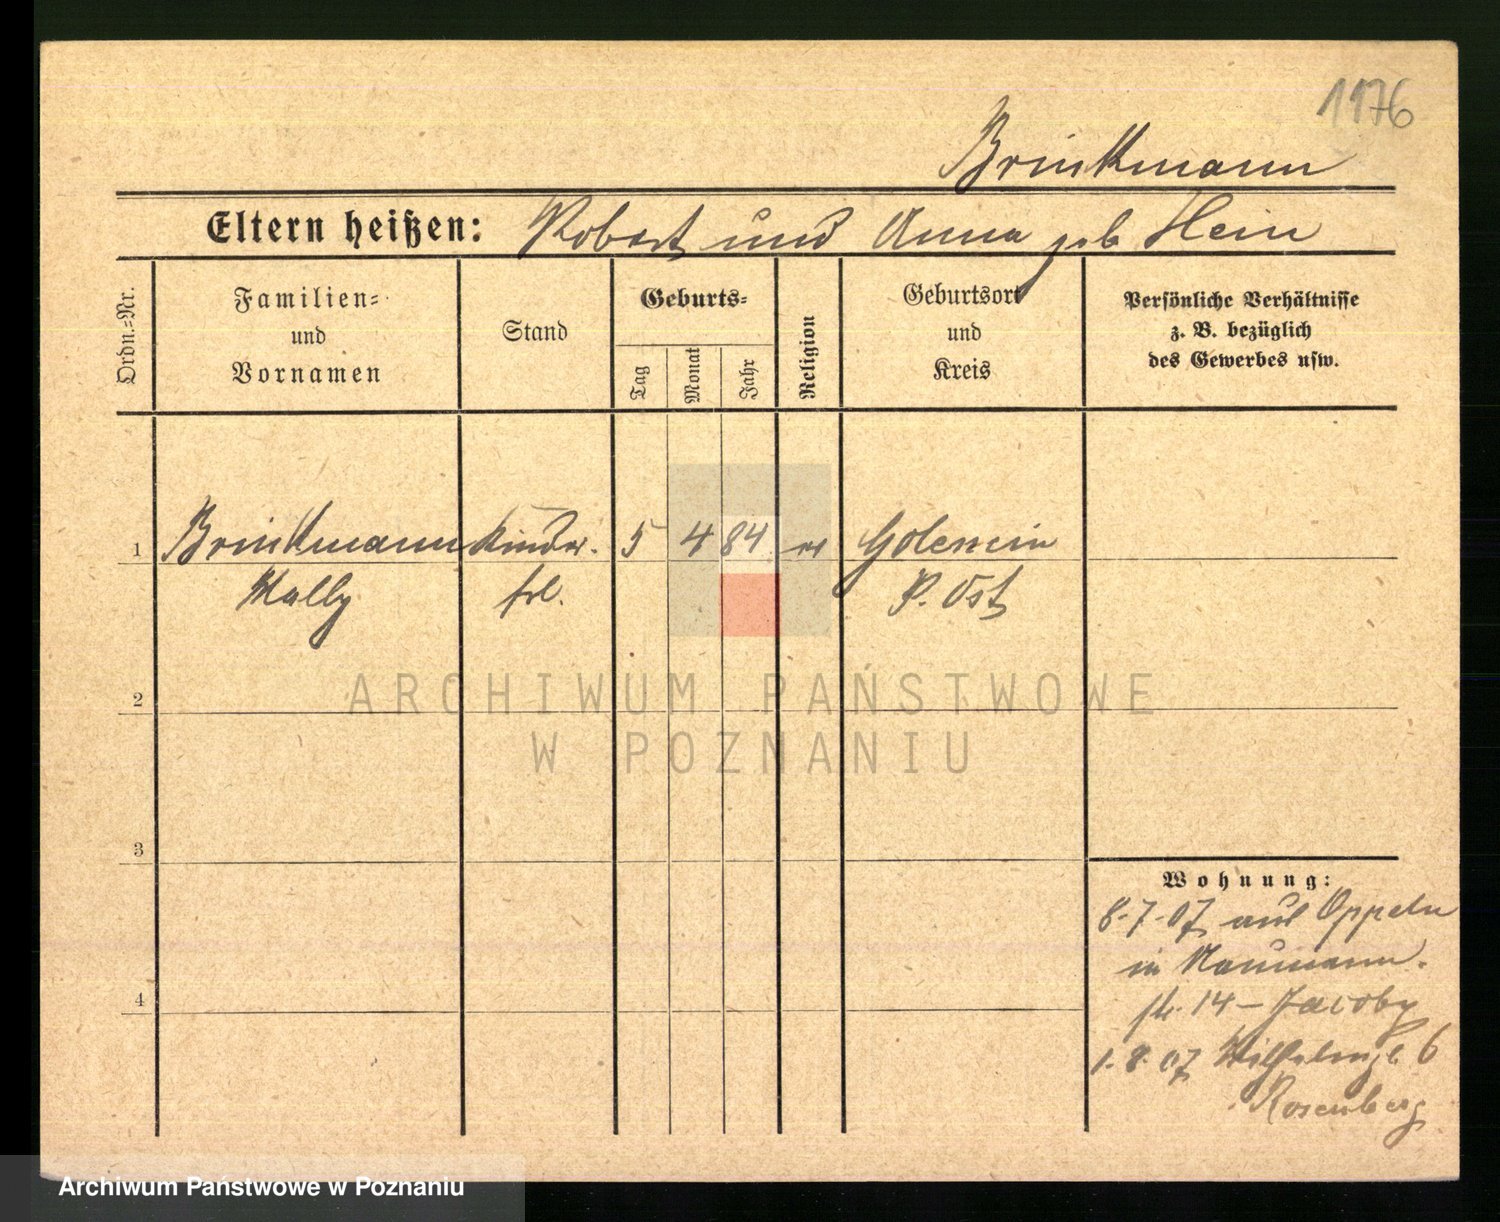 1176
Brinkmann
Eltern heißen: Robert und Anna geb Hein
Ordn.=Nr.
Familien=
und
Vornamen
Stand
Geburts=
Tag
Monat
Jahr
Religion
Geburtsort
und
Kreis
Persönliche Verhältnisse
z. B. bezüglich
des Gewerbes usw.
1 Brinkmann Kinder. 5 4 84
Wally frl. P. Ost
2
ARCHIWUM PAŃSTWOWE
W POZNANIU
3
4
Wohnung:
8.7.07 aus Oppeln
in Naumann.
str. 14 – Jacoby
1.8.07 Wilhelmpl. 6
Rosenberg
Archiwum Państwowe w Poznaniu